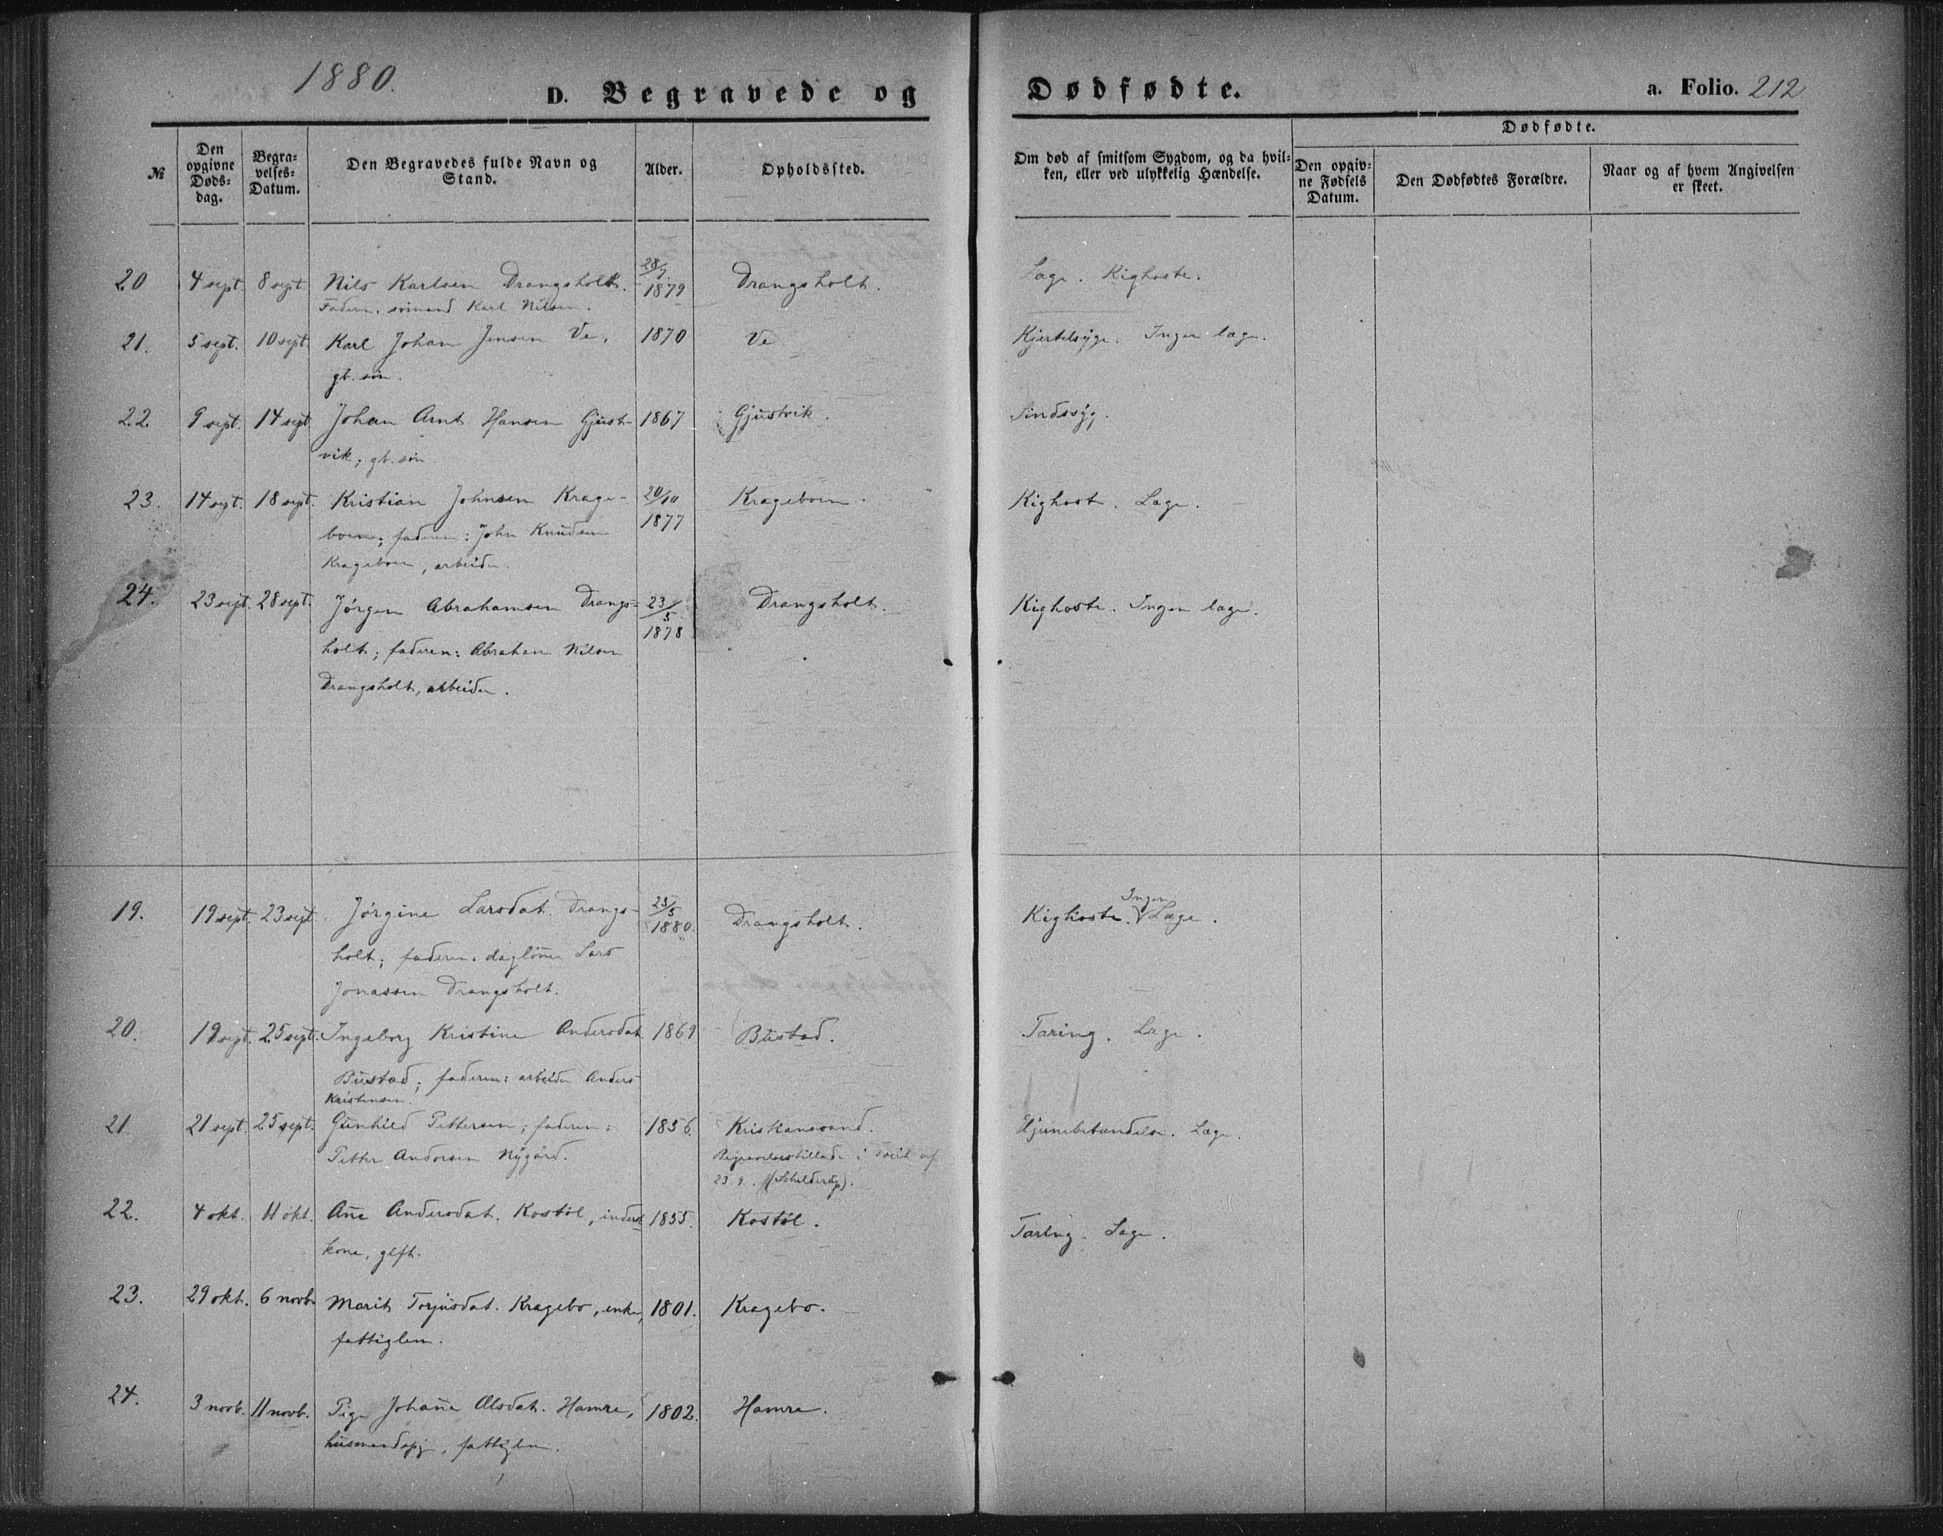 1880.
D. Begravede og Dødfødte. a. Folio. 212
№ Den opgivne Døds-dag. Begra-velses-Datum. Den Begravedes fulde Navn og Stand. Alder. Opholdssted. Om død af smitsom Sygdom, og da hvil-ken, eller ved ulykkelig Hændelse. Dødfødte. Den opgiv-ne Fødsels Datum. Den Dødfødtes Forældre. Naar og af hvem Angivelsen er skeet.
20 4 sept. 8 sept. Nils Karlsen Drangsholt. 28/7 1879 Drangsholt. Læge. Kighoste.
Faderen, sømand Karl Nilsen.
21. 5 sept. 10 sept. Karl Johan Jensen Ve, 1870 Ve Kjertelsyge. Ingen læge.
gb. søn.
22. 9 sept. 14 sept Johan Arnt Hansen Gjust- 1867 Gjustvik. Sindssyg.
vik; gb. søn
23. 14 sept. 18 sept. Kristian Johnsen Krage- 20/10 1877 Krageboen. Kighoste. Læge.
boen; faderen: John Knudsen
Krageboen, arbeider.
24. 23 sept. 28 sept. Jørgen Abrahamsen Drangs- 23/5 1878 Drangsholt. Kighoste. Ingen læge.
holt; faderen: Abraham Nilsen
Drangsholt, arbeider.
19. 19 sept. 23 sept. Jørgine Larsdat. Drangs- 23/5 1880. Drangsholt. Kighoste. Ingen Læge.
holt; faderen: dagløner Lars
Jonassen Drangsholt.
20. 19 sept. 25 sept. Ingeborg Kristine Andersdat. 1869 Bustad. Tæring. Læge.
Bustad; faderen: arbeider Anders
Kristensen.
21. 21 sept. 25 sept. Gunhild Pettersen; faderen: 1856. Kristiansand. Hjernebetændelse. Læge.
Petter Andersen Nygård. Begravelsestilladelse i Tveit af
23.9. (Schelderup).
22. 4 okt. 11 okt. Ane Andersdat. Kostøl, inderst 1855. Kostøl. Tæring. Læge.
kone, gift.
23. 29 okt. 6 novb. Marit Torjusdat. Kragebo, enke, 1801. Kragebo.
fattiglem.
24. 3 novb. 11 novb. Pige Johanne Olsdat. Hamre, 1802. Hamre.
husmandspige, fattiglem.